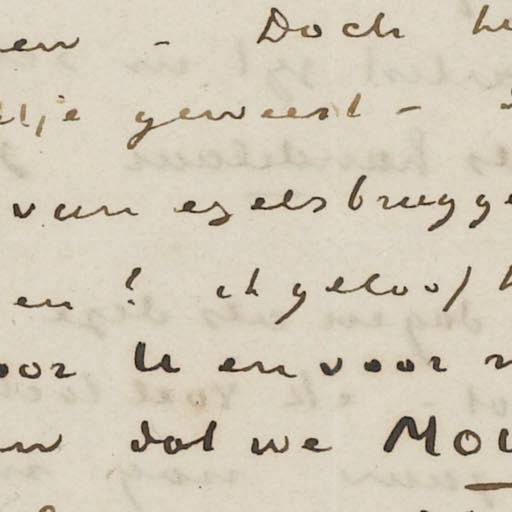 en - Doch h
tje geweest -
van ezelsbrugge
en? ik geloof
oor U en voor
en dat we MOE